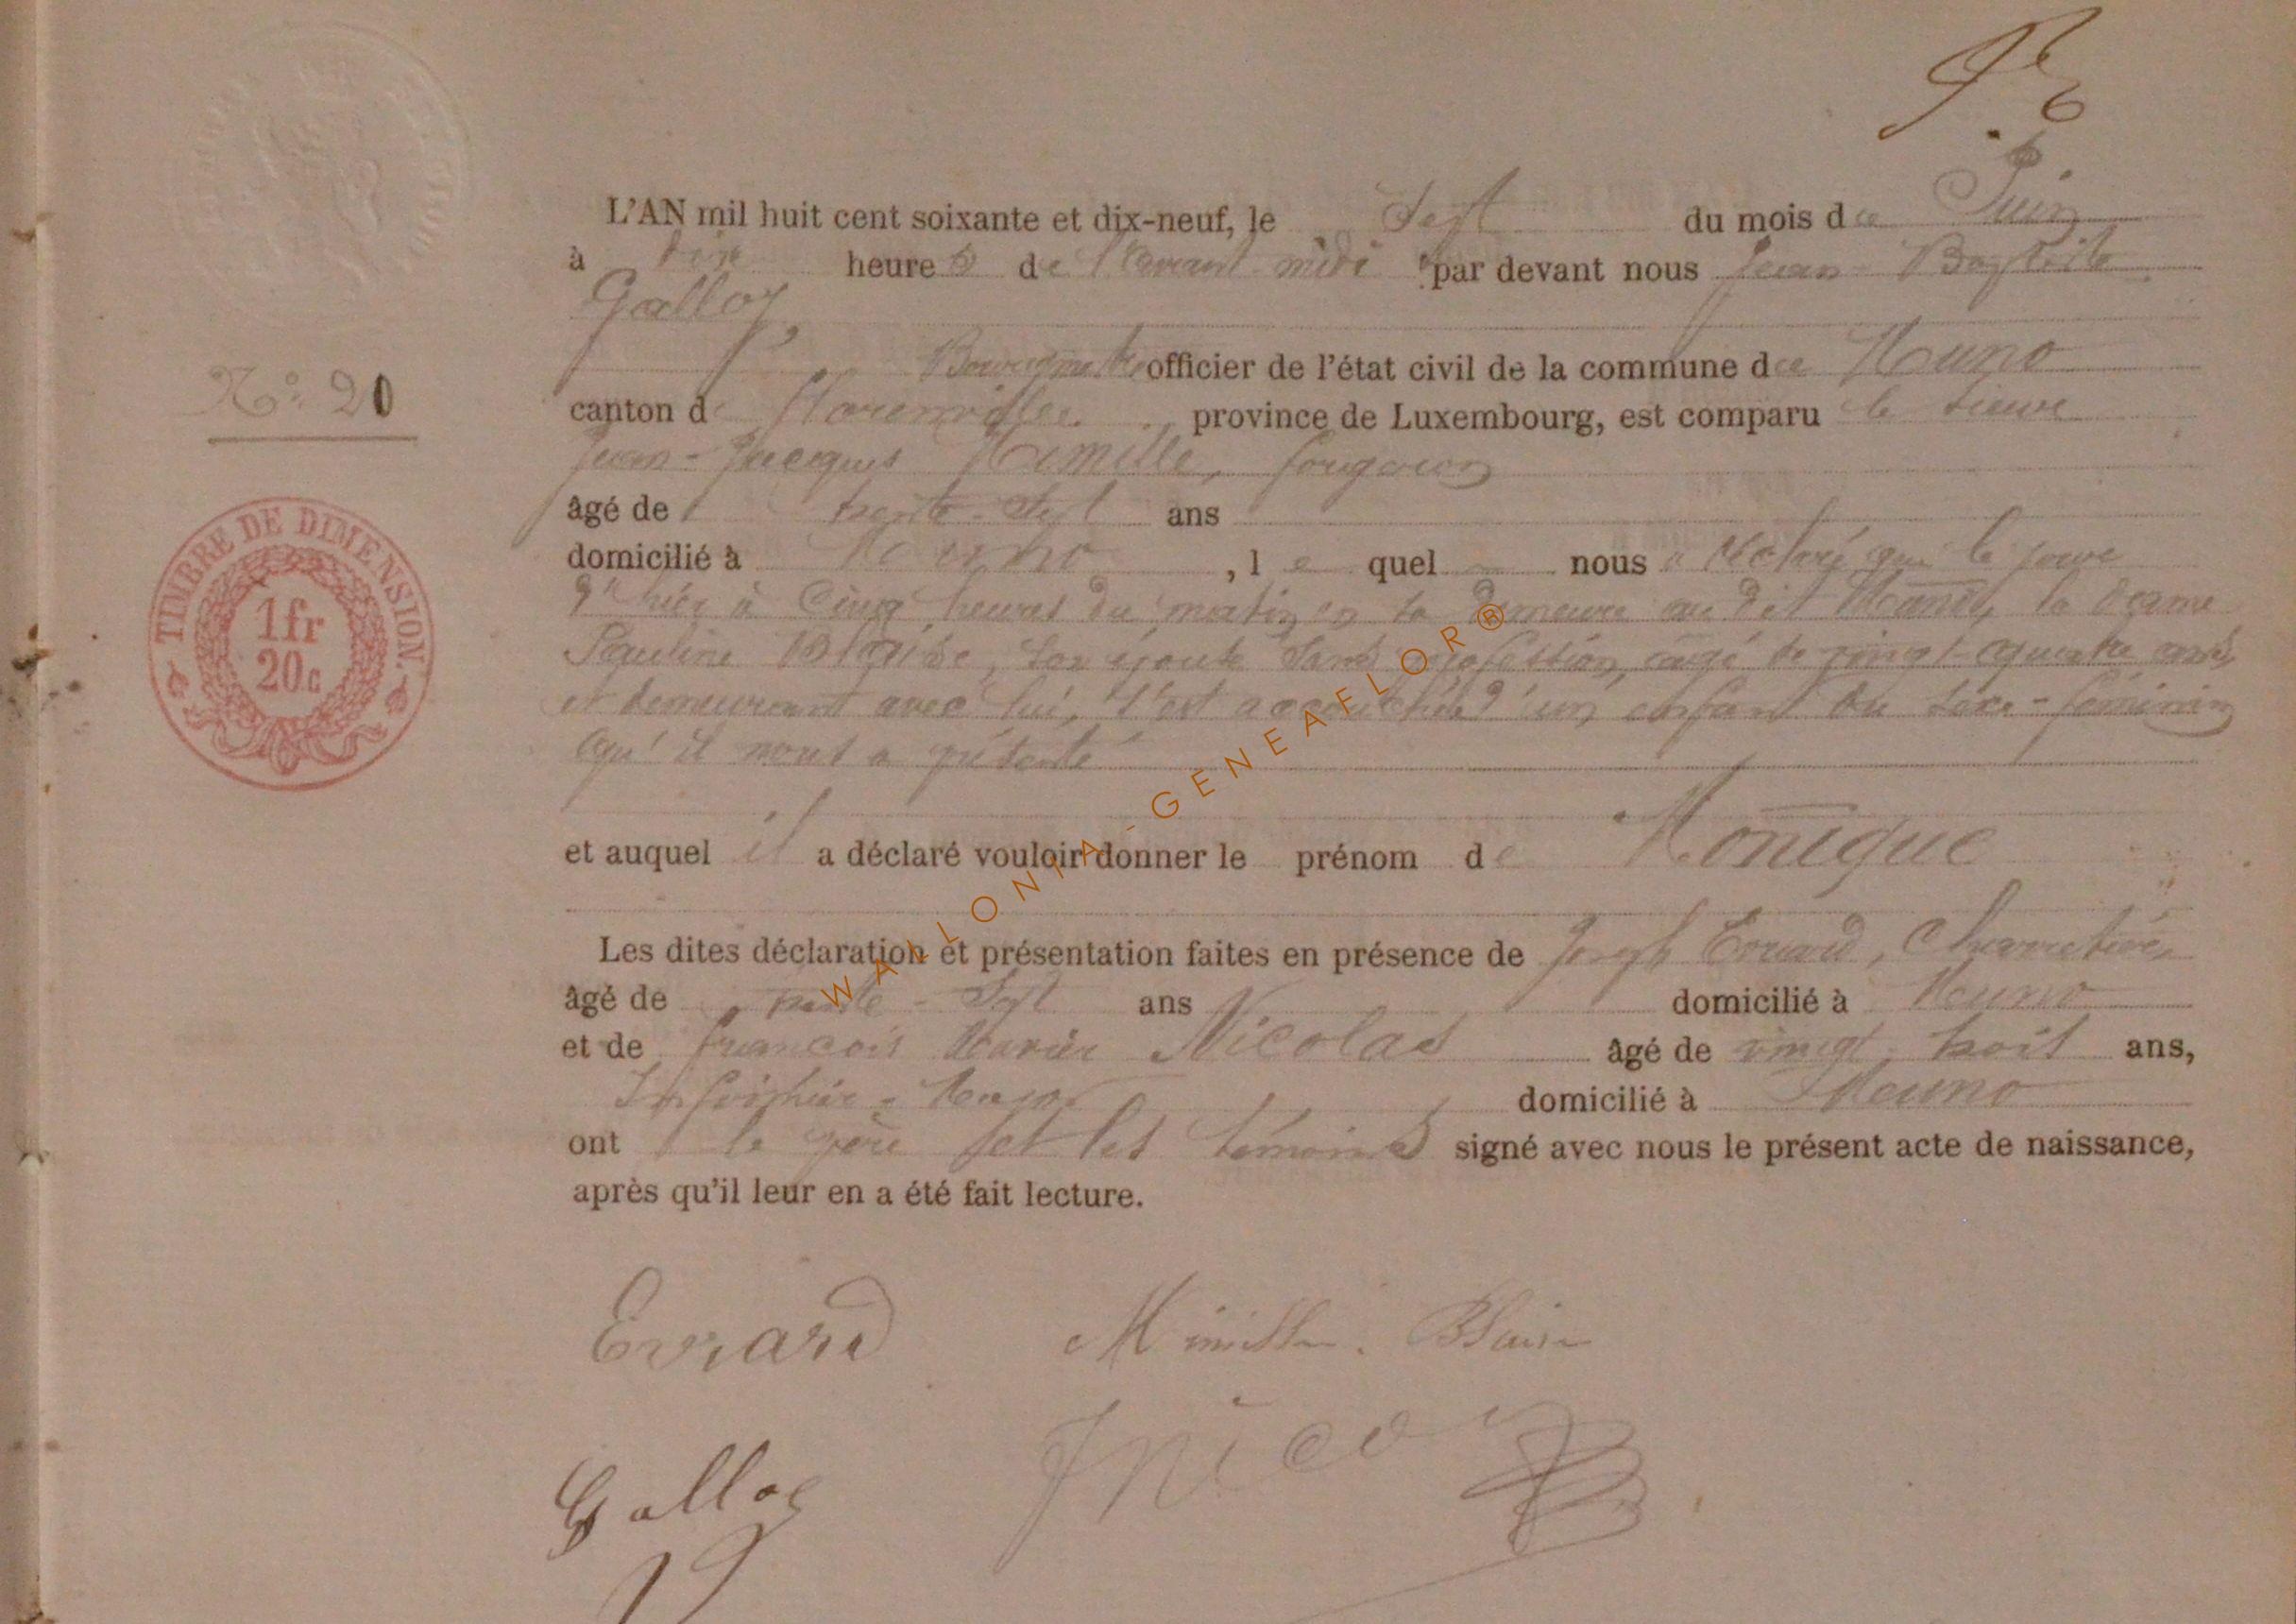 N° 20
TIMBRE DE DIMENSION.
1fr
20c
L'AN mil huit cent soixante et dix-neuf, le Sept du mois de Juin
à dix heures de l'avant midi par devant nous Jean-Baptiste
Galloy,
Bourgmestre officier de l'état civil de la commune de Muno
canton de Florenville, province de Luxembourg, est comparu le sieur
Jean-Jacques forgeron
âgé de trente-Sept ans
domicilié à Muno, lequel nous a déclaré que le jour
d'hier à Cinq heures du matin en sa demeure au dit Muno, la dame
Pauline Blaise, son épouse sans profession, âgé de vingt-quatre ans,
et demeurant avec lui, s'est accouchée d'un enfant du sexe-féminin
qu'il nous a présenté
et auquel il a déclaré vouloir donner le prénom de Monique
Les dites déclaration et présentation faites en présence de Joseph Evrard,
âgé de trente-Sept ans domicilié à Muno
et de François Nicolas âgé de vingt trois ans,
domicilié à Muno
ont le père et les témoins signé avec nous le présent acte de naissance,
après qu'il leur en a été fait lecture.
Evrard Blaise
Galloy
WALLONIA-GENEAFLOR®